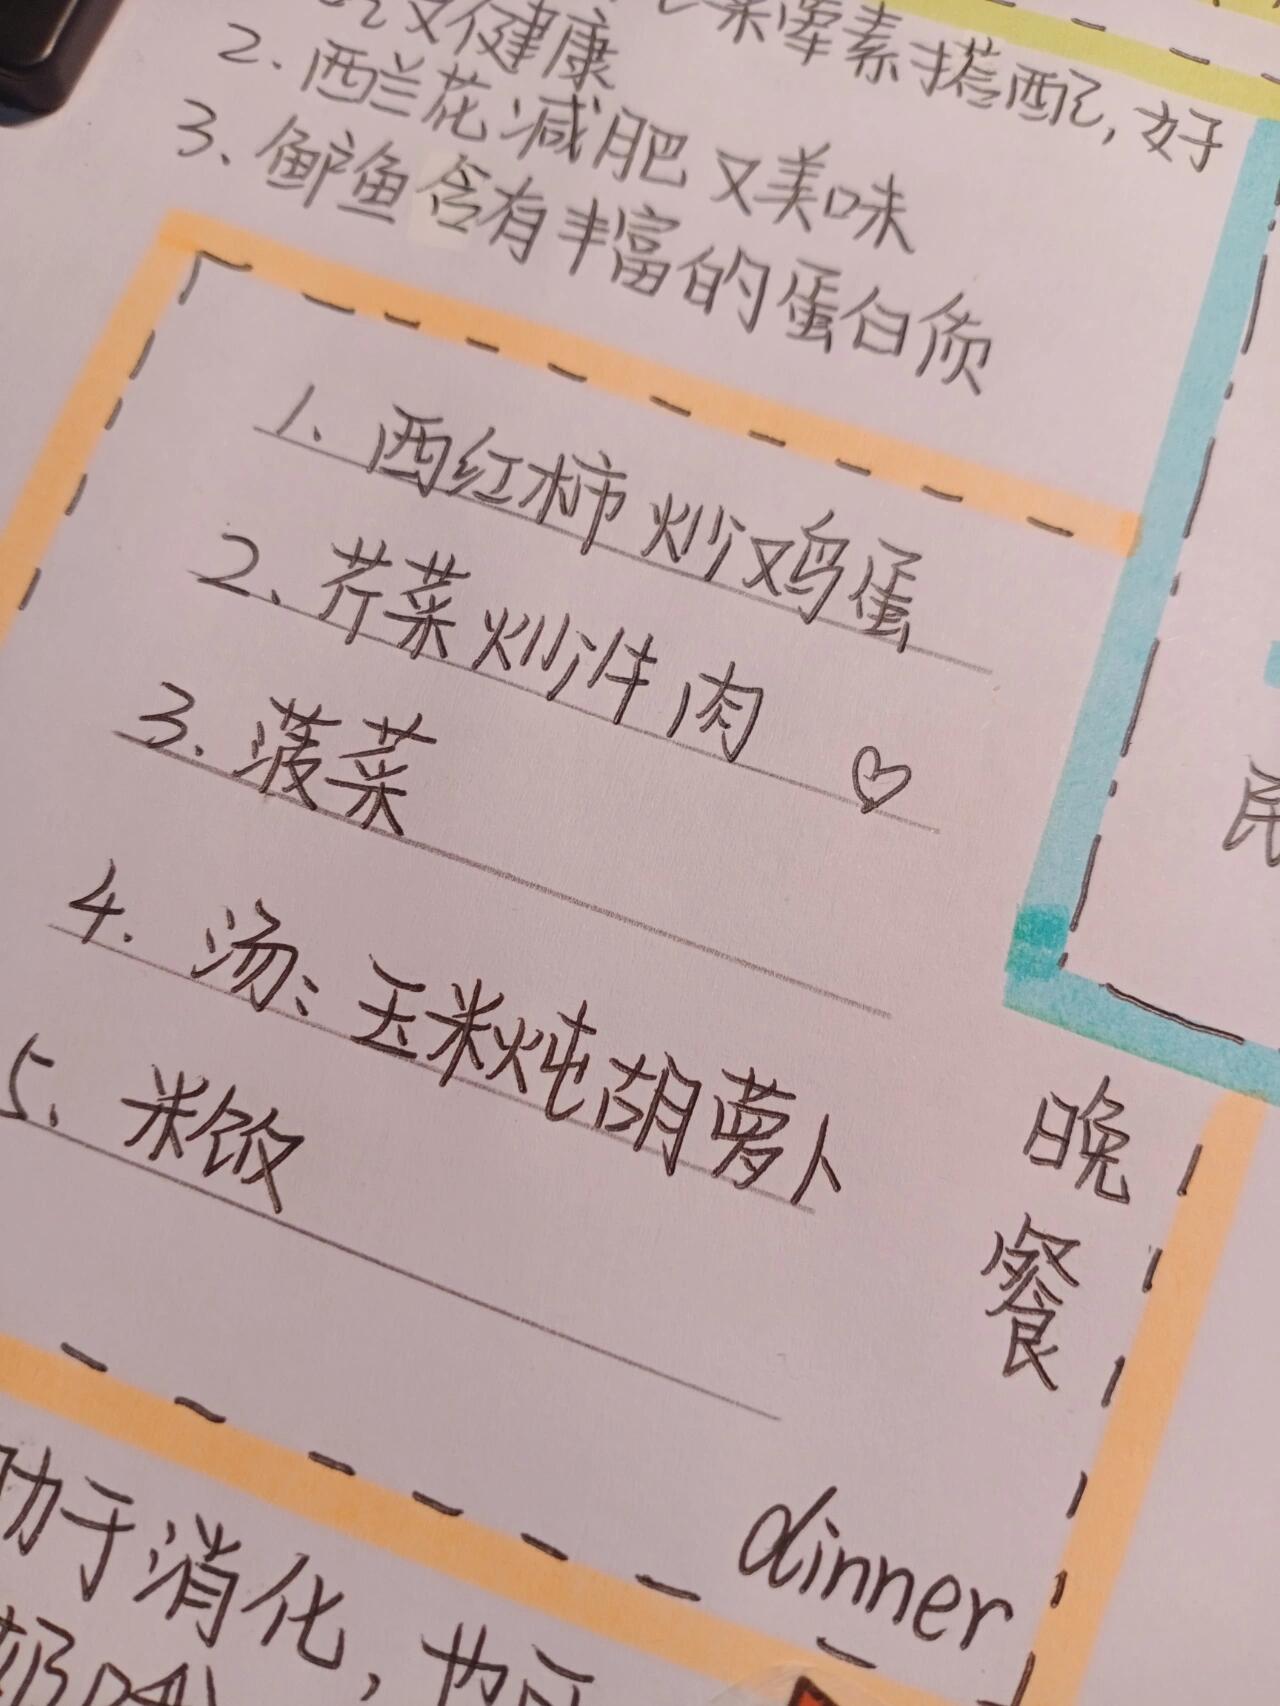 荤素搭配，好
又健康
2. 西兰花减肥又美味
3. 鲈鱼含有丰富的蛋白质
1. 西红柿炒鸡蛋
2. 芥菜炒牛肉 ♡
3. 菠菜
4. 汤：玉米炖胡萝卜
5. 米饭
晚餐
dinner
助于消化，